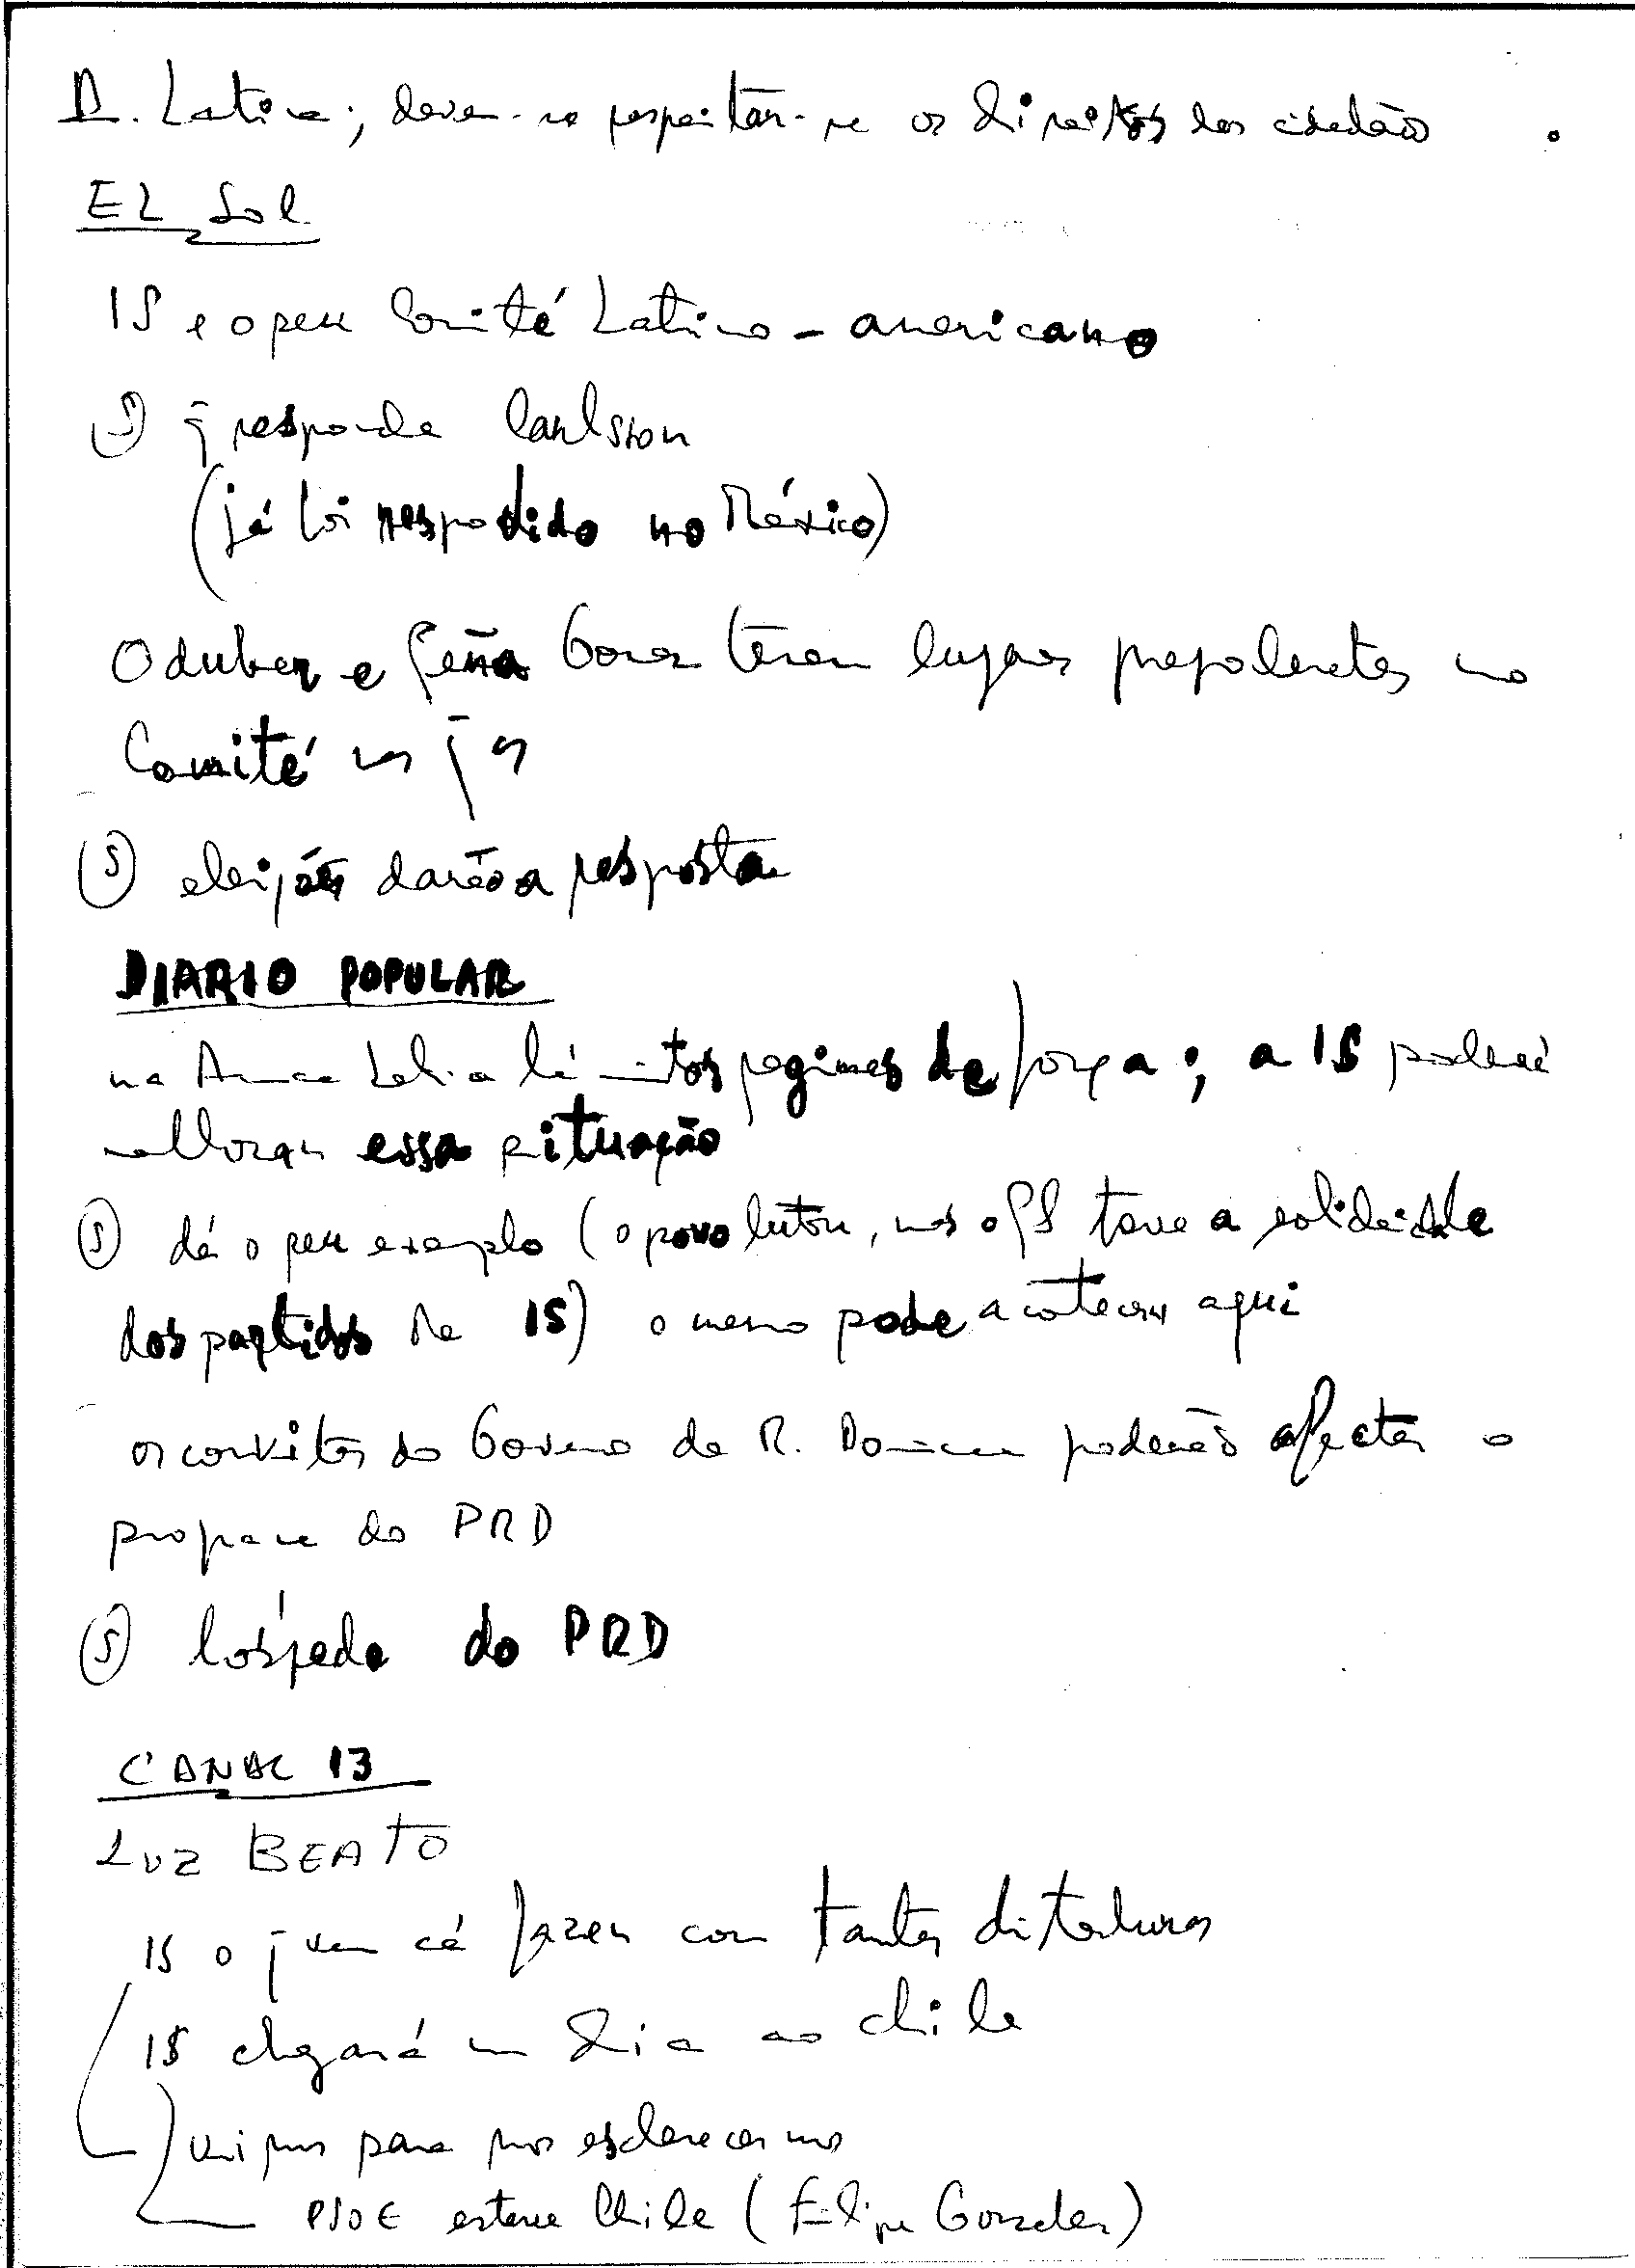 A. Latina; devem-se respeitar-se os direitos dos cidadãos
EL Sol
IS e o seu Comité Latino-americano
(S) q̄ responda Carlsson
(já foi respodido no México)
Oduber e Peña Gomez terem lugares preponderantes no
Comité
(S) eleições darão a resposta
DIARIO POPULAR
na America Latina há mtos regimes de força; a IS poderá
melhorar essa situação
(S) dá o seu exemplo (o povo lutou, mas o PS teve a solidariedade
dos partidos da IS) o mesmo pode acontecer aqui
os convites do Governo da R. Dominicana poderão afectar o
do PRD
(S) hóspede do PRD
CANAL 13
LUZ BEATO
IS o q̄ vem cá fazer com tantas ditaduras
IS chegará um dia ao Chile
vimos para nos esclarecermos
PSOE esteve Chile (Felipe Gonzalez)